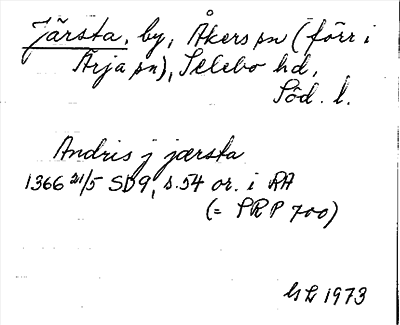 Järsta, by, Åkers sn (förr i
Ärja sn), Selebo hd,
Söd. l.
Andris j jærsta
1366 21/5 SD9, s.54 or. i RA
(= SRP 700)
GL 1973